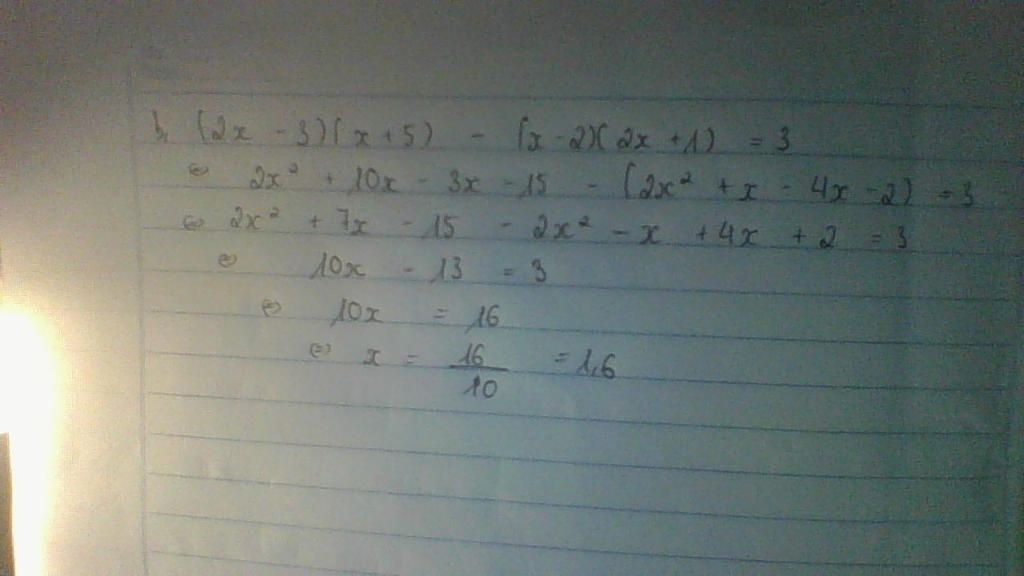 b, (2x - 3)(x + 5) - (x - 2)(2x + 1) = 3
⇔ 2x² + 10x - 3x - 15 - (2x² + x - 4x - 2) = 3
⇔ 2x² + 7x - 15 - 2x² - x + 4x + 2 = 3
⇔ 10x - 13 = 3
⇔ 10x = 16
⇔ x = 16/10 = 1,6